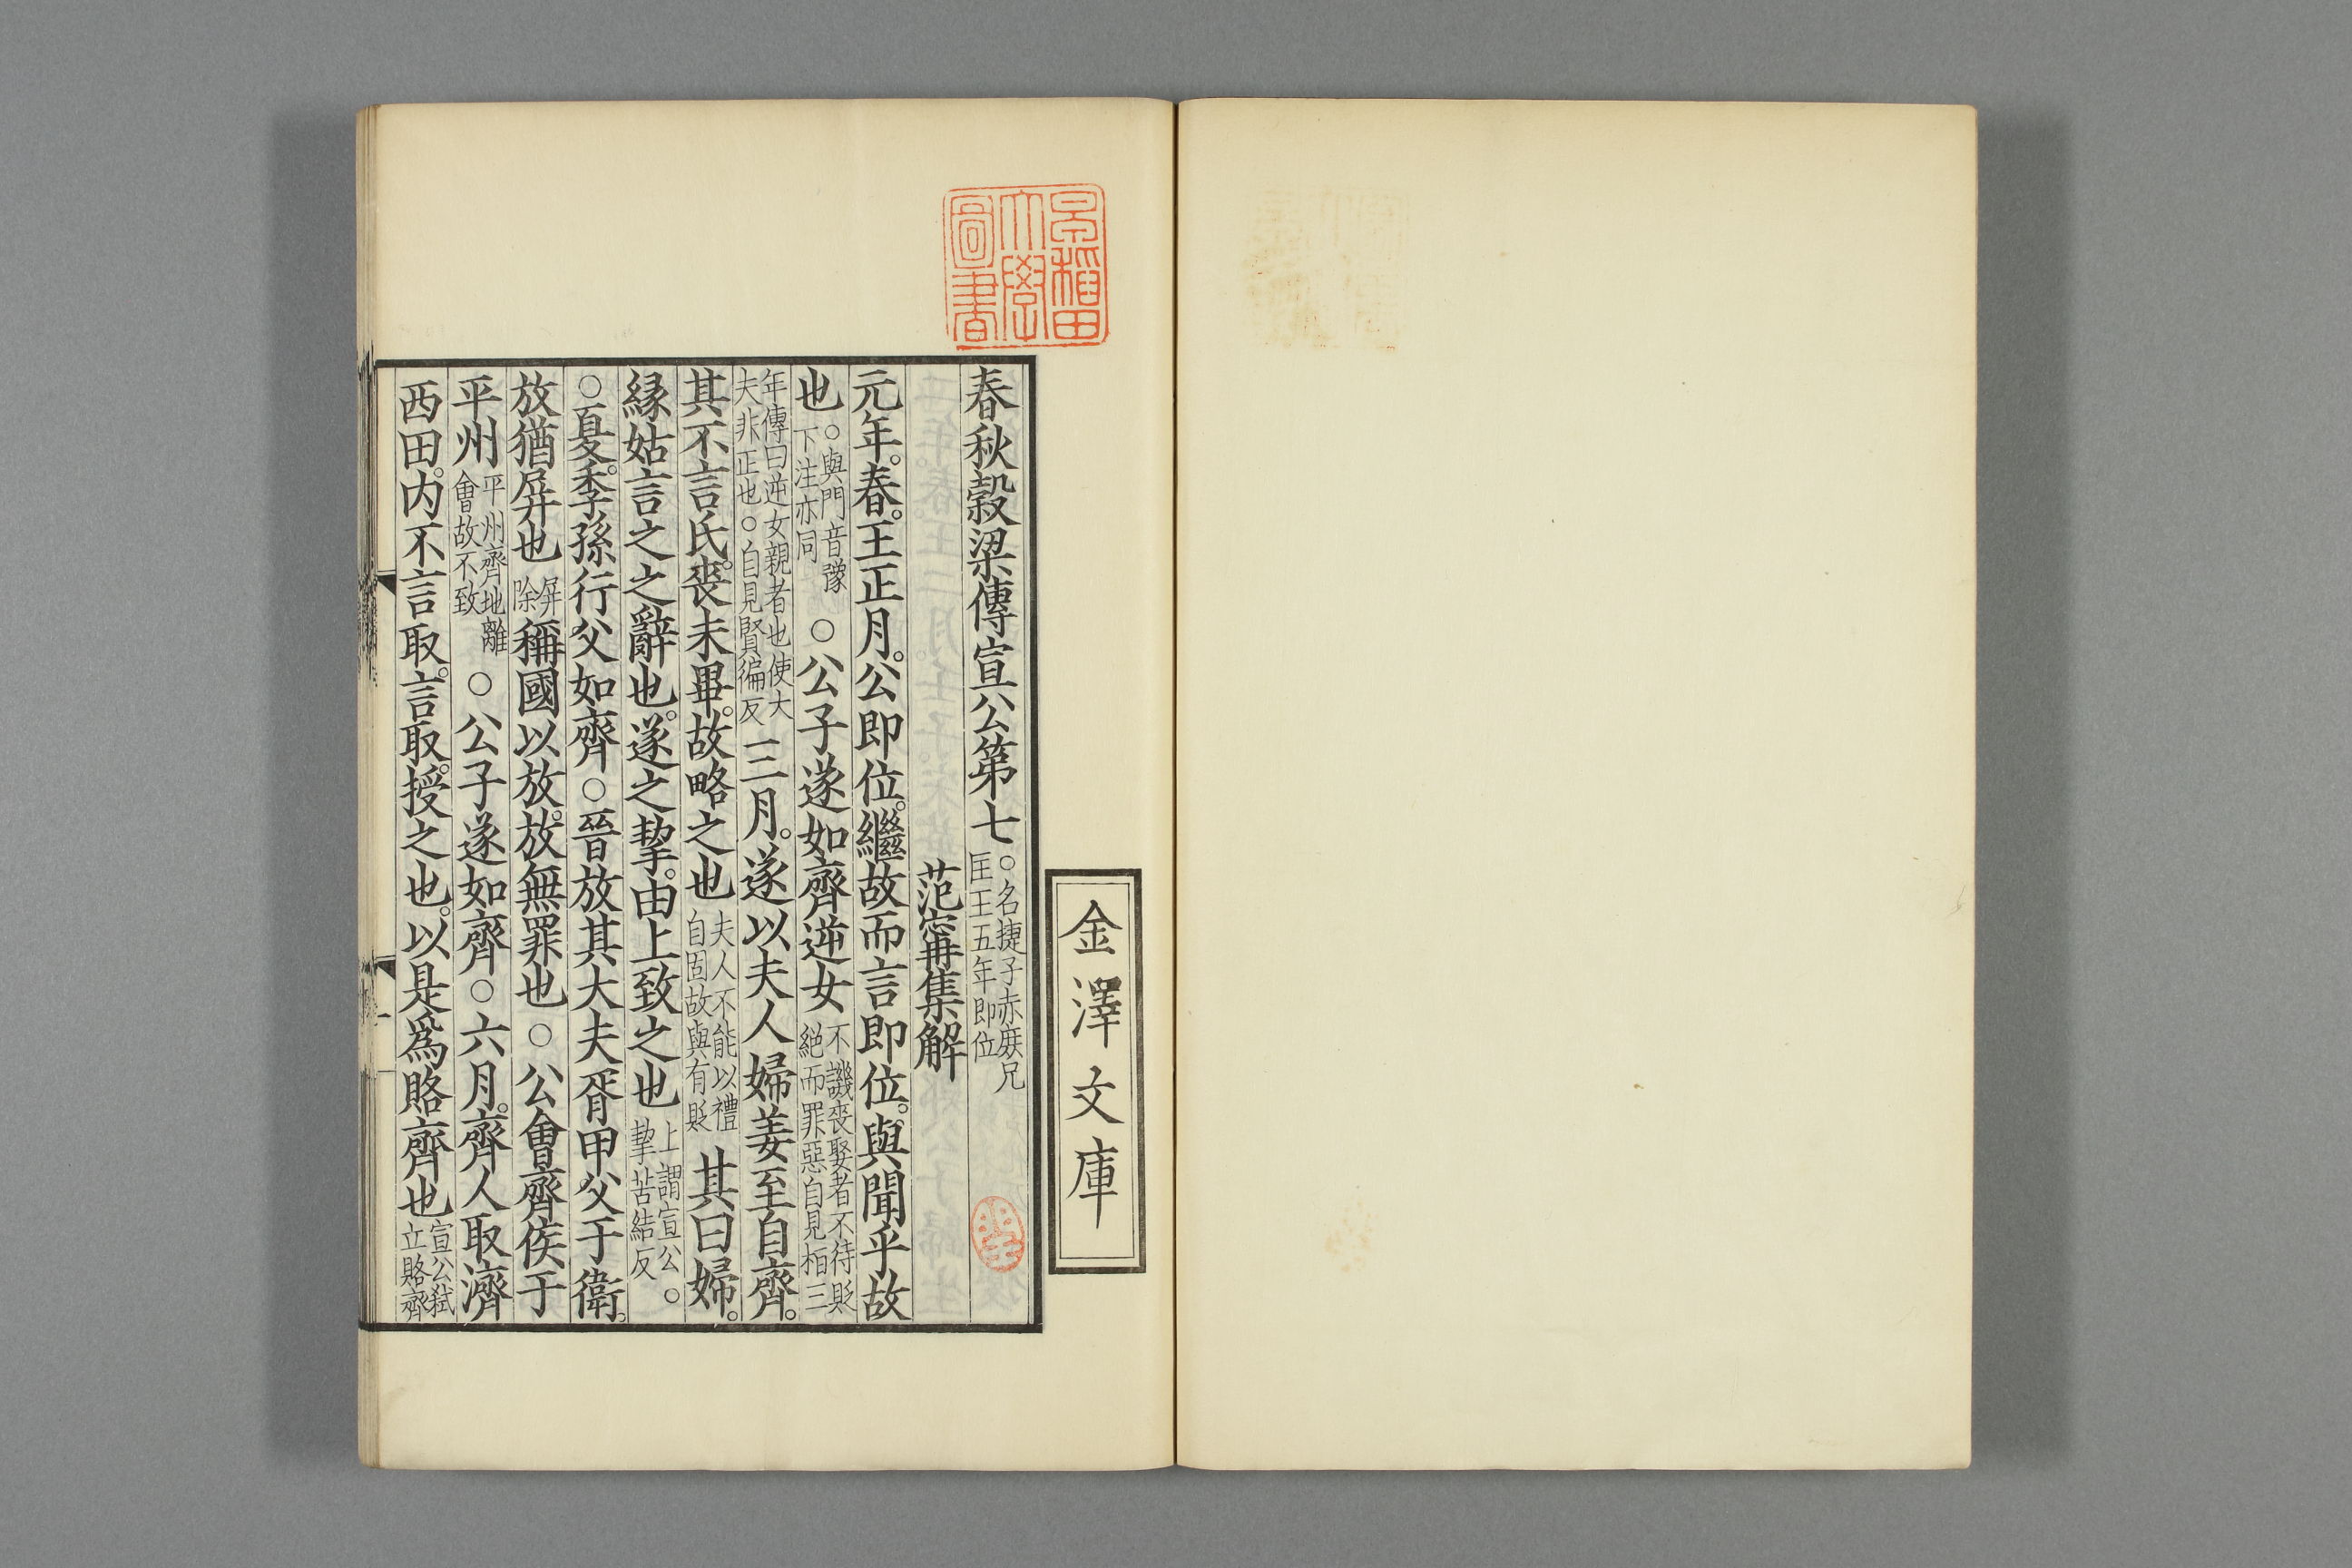 早稲田
大學
圖書
金澤文庫
春秋穀梁傳宣公第七○名捷子赤庶兄匡王五年即位
范甯集解
元年。春。王正月。公即位。繼故而言即位。與聞乎故
也○與門音豫下注亦同○公子遂如齊逆女不譏喪娶者不待貶絕而罪惡自見桓三
年傳曰逆女親者也使大夫非正也○自見賢徧反三月。遂以夫人婦姜至自齊。
其不言氏。喪未畢。故略之也夫人不能以禮自固故與有貶其曰婦。
緣姑言之之辭也。遂之挈。由上致之也上謂宣公○挈苦結反
○夏。季孫行父如齊○晉放其大夫胥甲父于衛。
放猶屏也屏除稱國以放。放無罪也○公會齊侯于
平州平州齊地離會故不致○公子遂如齊○六月。齊人取濟
西田。内不言取。言取。授之也。以是爲賂齊也宣公弑立賂齊